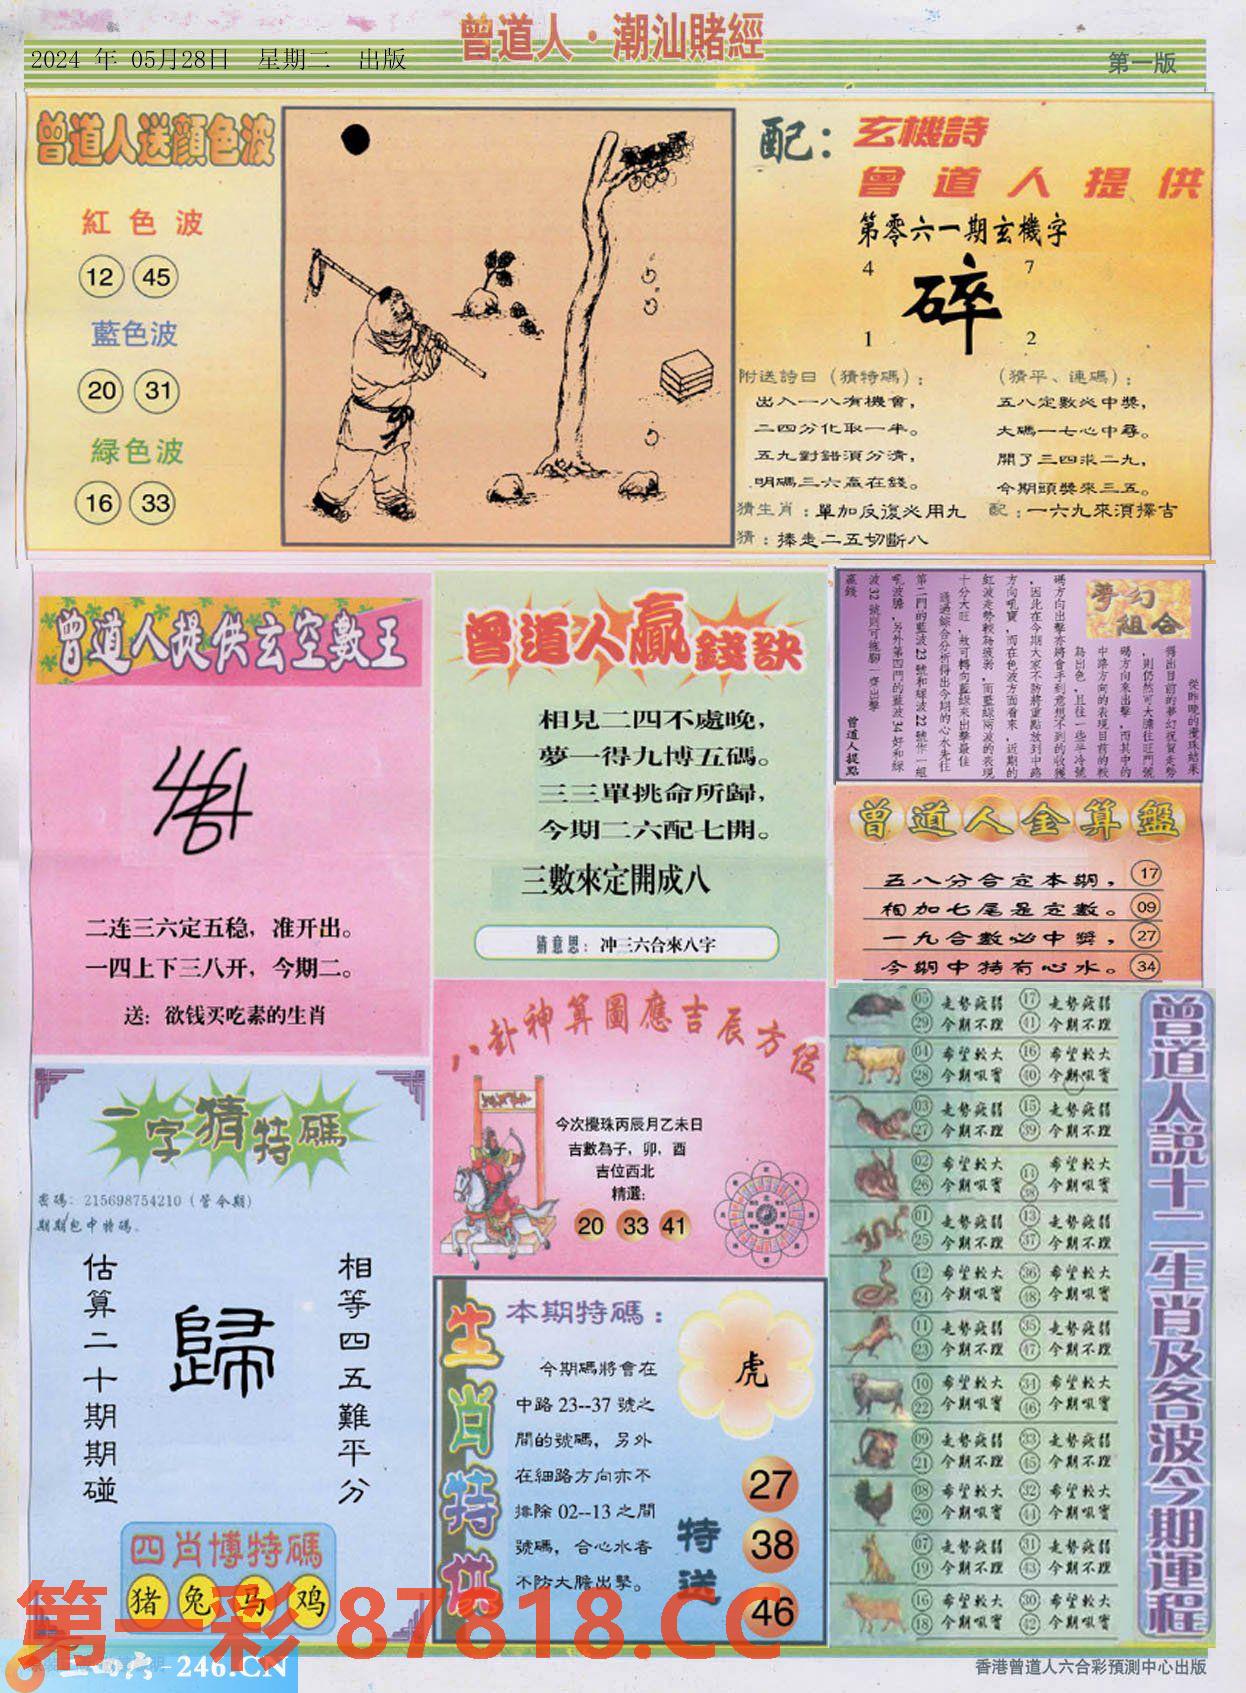 曾道人·潮汕賭經
2024 年 05月28日 星期二 出版
第一版
曾道人送顏色波
紅色波
12 45
藍色波
20 31
緑色波
16 33
配：玄機詩
曾道人提供
第零六一期玄機字
4 7
碎
1 2
附送詩曰（猜特碼）：
出入一八有機會，
二四分化取一半。
五九對錯須分清，
明碼三六贏在錢。
（猜平、連碼）：
五八定數必中獎，
大碼一七心中尋。
開了三四求二九，
今期頭獎來三五。
猜生肖：單加反復必用九
配：一六九來須擇吉
猜：捧走二五切斷八
曾道人提供玄空數王
二连三六定五稳，准开出。
一四上下三八开，今期二。
送：欲钱买吃素的生肖
曾道人贏錢訣
相見二四不處晚，
夢一得九博五碼。
三三單挑命所歸，
今期二六配七開。
三數來定開成八
猜意思：冲三六合來八字
夢幻組合
從昨晚的攪珠結果
得出目前的夢幻祝賀走勢
，則仍然可大膽往旺門號
碼方向來出擊，而其中的
中路方向的表現目前的較
為出色，且往一些半冷號
碼方向出擊亦將會手到意想不到的收獲
，因此在今期大家不防將重點放到中路
方向吼寶，而在色波方面看來，近期的
紅波走勢較為疲弱，而藍綠兩波的表現
十分大旺，故可轉向藍綠來出擊最佳
通過綜合分析得出今期的心水先往
第二門的藍波23號和綠波22號作一組
吼波膽，另外第四門的藍波34好和綠
波32號則可拖腳一齊出擊
贏錢
曾道人提點
曾道人金算盤
五八分合定本期， 17
相加七尾是定數。 09
一九合數必中獎， 27
今期中特有心水。 34
八卦神算圖應吉辰方位
今次攪珠丙辰月乙未日
吉數為子，卯，酉
吉位西北
精選：
20 33 41
一字猜特碼
密碼：215698754210（管今期）
期期包中特碼。
估算二十期期碰
歸
相等四五難平分
四肖博特碼
猪 兔 马 鸡
生肖特供
本期特碼：
今期碼將會在
中路23--37 號之
間的號碼，另外
在細路方向亦不
排除02--13之間
號碼，合心水者
不防大膽出擊。
虎
特送
27
38
46
曾道人說十二生肖及各波今期運程
05 走勢疲弱 17 走勢疲弱
29 今期不理 41 今期不理
04 希望較大 16 希望較大
28 今期吼寶 40 今期吼寶
03 走勢疲弱 15 走勢疲弱
27 今期不理 39 今期不理
02 希望較大 14 希望較大
26 今期吼寶 38 今期吼寶
01 走勢疲弱 13 走勢疲弱
25 今期不理 37 今期不理
12 希望較大 36 希望較大
24 今期吼寶 48 今期吼寶
11 走勢疲弱 35 走勢疲弱
23 今期不理 47 今期不理
10 希望較大 34 希望較大
22 今期吼寶 46 今期吼寶
09 走勢疲弱 33 走勢疲弱
21 今期不理 45 今期不理
08 希望較大 32 希望較大
20 今期吼寶 44 今期吼寶
07 走勢疲弱 31 走勢疲弱
19 今期不理 43 今期不理
16 希望較大 30 希望較大
18 今期吼寶 42 今期吼寶
第一彩 87818.CC
-246.CN
香港曾道人六合彩預測中心出版